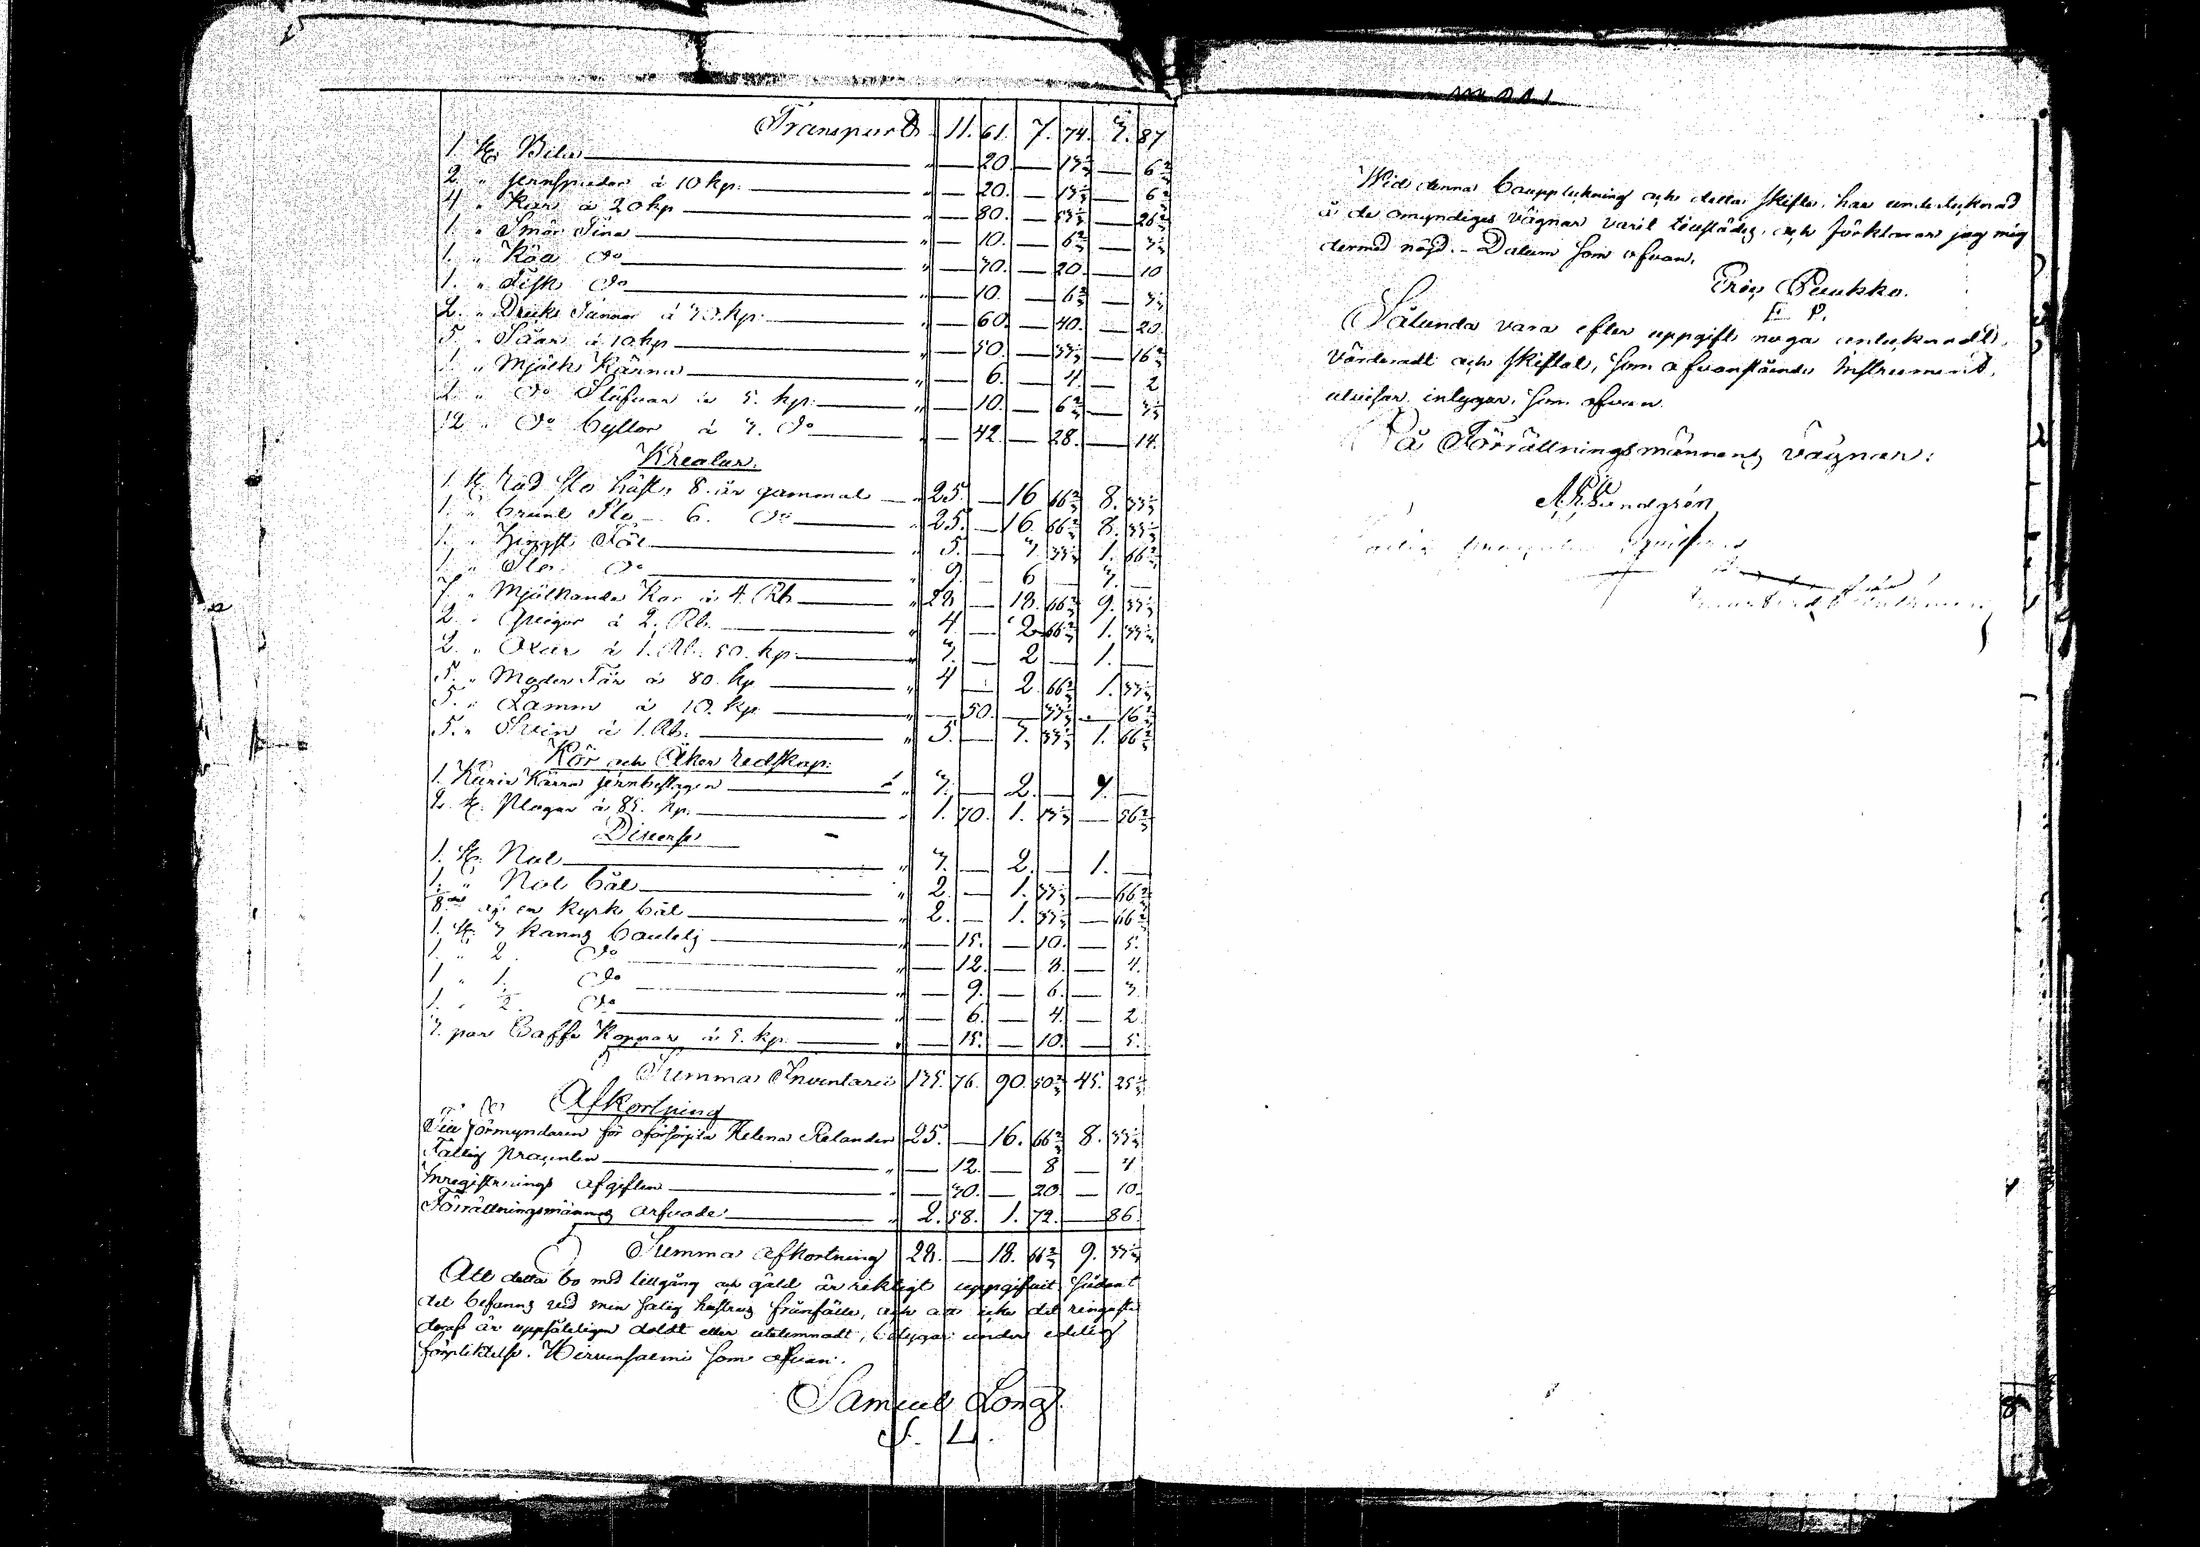 Transport 11. 61. 7. 74. 3. 87
1. st. Bila " — 20. — 13 1/3 — 6 2/3
2. " Jernspadar á 10 kp. " — 20. — 13 1/3 — 6 2/3
4 " Kar á 20 kp " — 80. — 53 1/3 — 26 2/3
1. " Smör Tina " — 10. — 6 2/3 — 3 1/3
1. " Do " — 30. — 20. — 10
1. " Fisk Do " — 10. — 6 2/3 — 3 1/3
2. " Dricks Tunnor á 30. kp. " — 60. — 40. — 20.
5. " Såar á 10 kp " — 50. — 33 1/3 — 16 2/3
1. " Mjölk Kärna " — 6. — 4. — 2
2. " Do Stäfvar á 5. kp. " — 10. — 6 2/3 — 3 1/3
12 " Do Byttor á 3. Do " — 42. — 28. — 14.
Kreatur.
1. st. Röd Sto häst, 8. år gammal " 25. — 16 66 2/3 8. 33 1/3
1. " brunt Sto — 6. Do " 25. — 16. 66 2/3 8. 33 1/3
1. " Hingst Föl " 5. — 3 33 1/3 1. 66 2/3
1. " Sto Do " 9. — 6 — 3. —
7. " Mjölkande Kor á 4. Rb " 28 — 18. 66 2/3 9. 33 1/3
2. " Qvigor á 2. Rb. " 4 — 2 66 2/3 1. 33 1/3
2. " Oxar á 1. Rb. 50. kp. " 3. — 2 — 1. —
5. " Moder Får á 80. kp " 4 — 2. 66 2/3 1. 33 1/3
5. " Lamm á 10. kp " — 50. — 33 1/3 — 16 2/3
5. " Svin á 1. Rb. " 5. — 3. 33 1/3 1. 66 2/3
Kör och Åker redskap:
1. Kärra jernbeslagen " 3. — 2. — 1. —
2. st. Plogar á 85. kp. " 1. 70. 1. 13 1/3 — 56 2/3
Diverse
1. st. Not " 3. — 2. — 1. —
1. " Not båt " 2. — 1. 33 1/3 — 66 2/3
8del uti en Kyrk båt " 2. — 1. 33 1/3 — 66 2/3
1. st. 3 kanns bouteilj " — 15. — 10. — 5.
1. " 2. Do " — 12. — 8. — 4.
1 " 1. Do " — 9. — 6. — 3.
1. " 1/2. Do " — 6. — 4. — 2.
3. par Caffe Koppar á 5. kp. " — 15. — 10. — 5.
Summa Inventarii 135. 76. 90. 50 2/3 45. 25 1/3
Afkortning
Till förmyndaren för Helena Relander 25. — 16. 66 2/3 8. 33 1/3
Fattig procenten " — 12. — 8 — 4
Inregistrerings afgiften " — 30. — 20 — 10.
Förrättningsmännens arfvode " 2. 58. 1. 72. — 86.
Summa afkortning 28. — 18. 66 2/3 9. 33 1/3
Att detta bo med tillgång och gäld är riktigt uppgifvit sådant
det befanns vid min salig hustrus frånfälle, och att icke det ringaste
deraf är uppsåteligen doldt eller utelemnadt, betygar under edelig
förpliktelse. Hirvensalmi som ofvan.
Samuel Long
S. L.
Wid denna bouppteckning och detta skifte, har undertecknad
å de omyndiges vägnar varit tillstädes, och förklarar jag mig
dermed nöjd. – Datum som ofvan.
Eric Puukko.
E. P.
Sålunda vara efter uppgift noga antecknadt,
värderadt och skiftat, som ofvanstående Instrument,
utvisar, intygar, som ofvan.
På Förrättningsmännens vägnar: